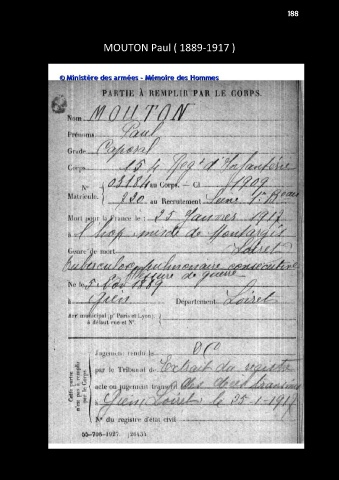 188
MOUTON Paul ( 1889-1917 )
© Ministère des armées - Mémoire des Hommes
PARTIE À REMPLIR PAR LE CORPS.
Nom MOUTON
Prénoms Paul
Grade Caporal
Corps 154 Reg't d'Infanterie
N° 03184 au Corps. — Cl 1909
Matricule. 220 au Recrutement Seine 1er Bau
Mort pour la France le : 25 Janvier 1917
à l'hop mixte de Montargis
Genre de mort Loiret
tuberculose pulmonaire consécutive
blessure de guerre
Né le 5 Nov 1889
à Gien Département Loiret
Arr municipal (pr Paris et Lyon),
à défaut rue et N°.
Cette partie
n'est pas à remplir
par le Corps.
Jugement rendu le
par le Tribunal de Extrait du registre
acte ou jugement transcrit des décès transcrit
à Gien Loiret le 25-1-1917
N° du registre d'état civil